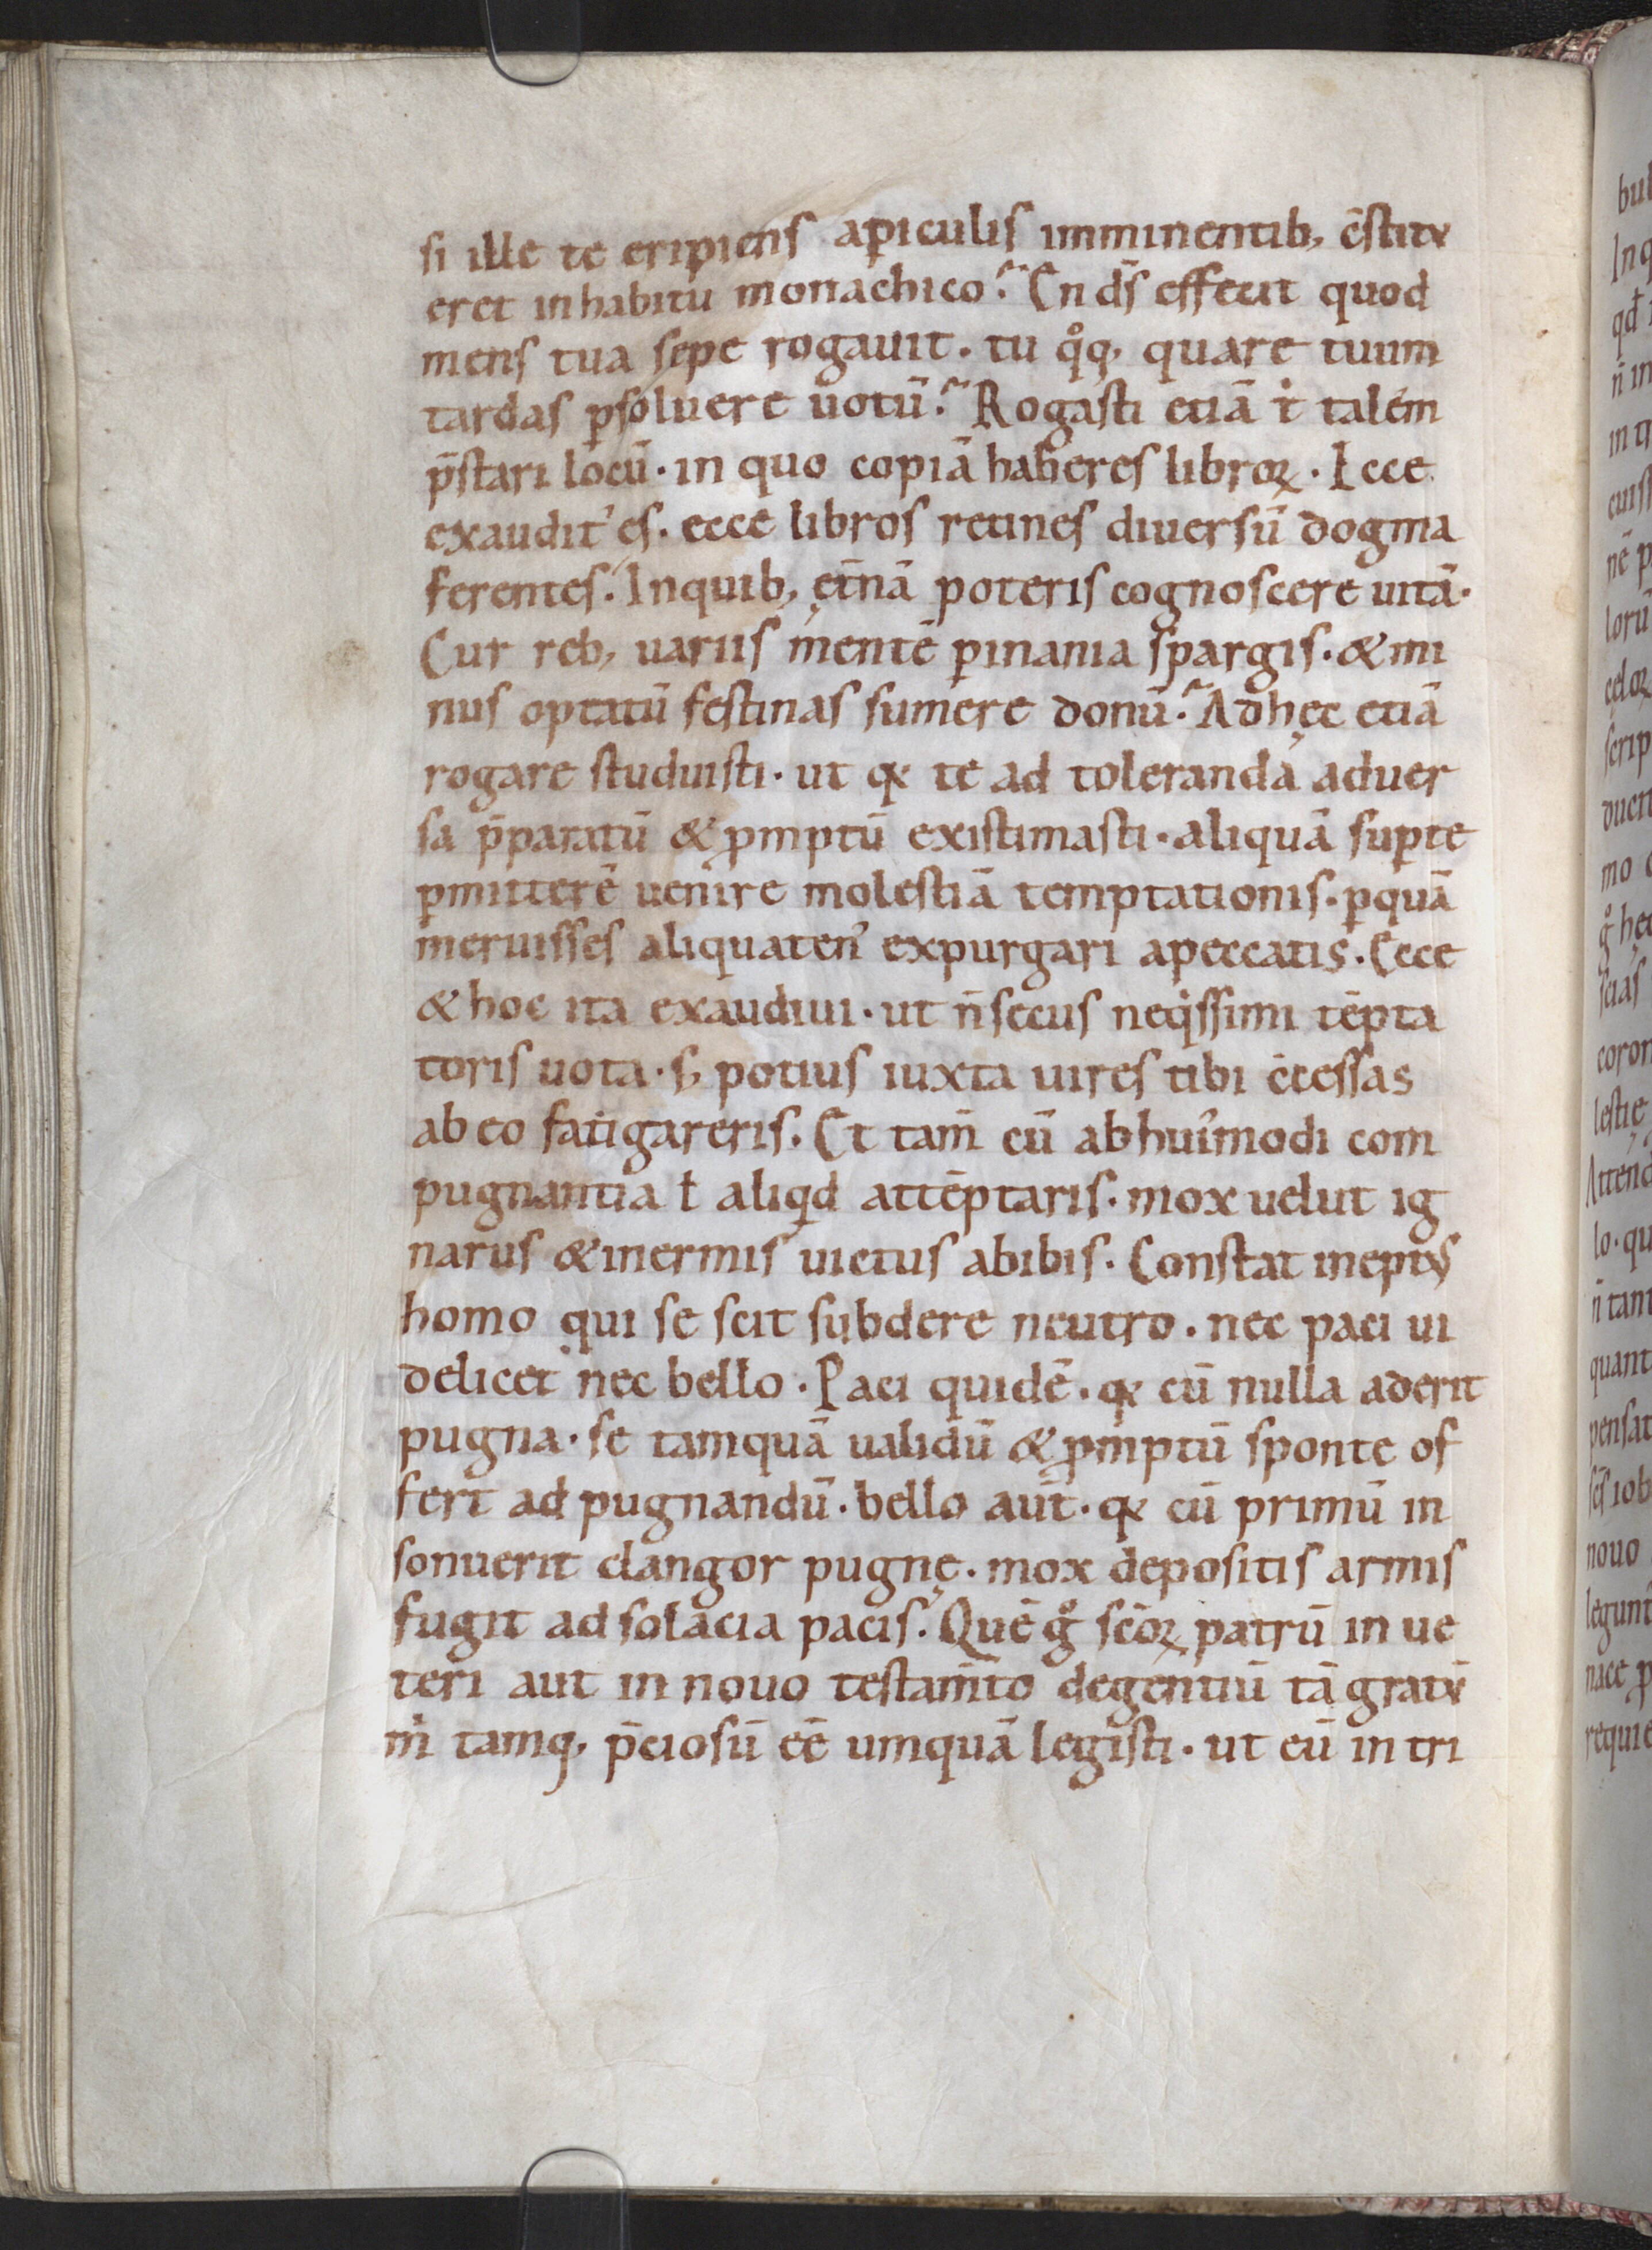 si ille te eripiens apiculis imminentib; c̄stitu
eret inhabitu monachico? En ds̄ effecit quod
mens tua sepe rogauit. tu qͦq; quare tuum
tardas p̱soluere uotū? Rogasti etiā t̓ talem
p̄stari locū. in quo copiā haberes libroꝝ. Ecce
exaudit᾽ es. ecce libros retines diuersū dogma
ferentes. Inquib; ęt̄nā poteris cognoscere uitā.
Cur reb; uariis mentē ꝑinania spargis. & mi
nus optatū festinas sumere donū? Adhęc etiā
rogare studuisti. ut qꝛ te ad toleranda aduer
sa p̄paratū & ꝓmptū existimasti. aliquā suꝑte
ꝑmitterē uenire molestiā temptationis. ꝑquā
meruisses aliquaten᾽ expurgari apeccatis. Ecce
& hoc ita exaudiui. ut n̄ secus neqͥssimi tēpta
toris uota. s; potius iuxta uires tibi c̄cessas
ab eo fatigareris. Et tam̄ cū ab hui᾽modi com
pugnantia ł aliqͥd attēptaris. mox uelut ig
narus & inermis uictus abibis. Constat ineptus
homo qui se scit subdere neutro. nec paci ui
delicet nec bello. Paci quidē. qꝛ cū nulla aderit
pugna. se tamquā ualidū & ꝓmptū sponte of
fert ad pugnandū. bello aūt. qꝛ cū primū in
sonuerit clangor pugnę. mox depositis armis
fugit ad solacia pacis. Quē gͦ sc̄oꝝ patrū in ue
teri aut in nouo testam̄to degentiū tā gratū
m̓ tamq; p̄ciosū eē umquā legisti. ut eū in tri